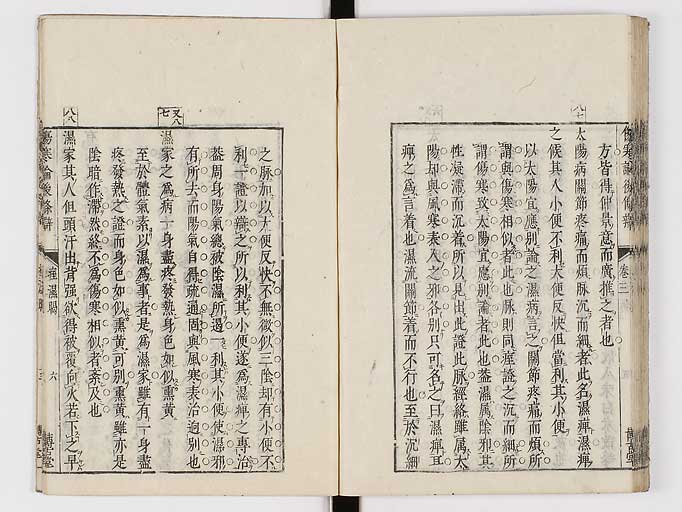 卷三
方皆得仲景意而廣推之者也
太陽病關節疼痛而煩脉沉而細者此名濕痺濕痺
之候其人小便不利大便反快但當利其小便
以太陽宜應別論之濕病言之關節疼痛而煩所
與傷寒相似者此也脉則同痙證之沉而細所
謂傷寒致太陽宜應別論者此也蓋濕屬陰邪其
性凝滯而沉着所以見出此證此脉經絡雖属太
陽却與風寒表入之邪各別只可名之曰濕痺耳
痺之爲言着也濕流關節着而不行也至於沉細
之脉加以大便反快不無微似三陰却有小便不
利一證以辯之所以利其小便遂爲濕痺之專治
葢周身陽氣總被陰濕所遏一利其小便使濕邪
有所去而陽氣自得疏通固與風寒表治迥別也
又八七
濕家之爲病一身盡疼發熱身色如似熏黃
至於體氣素以濕爲事者是爲濕家雖有一身盡
疼發熱之證而身色如似熏黃可别熏黃雖亦是
陰暗作滯然終不爲傷寒相似者紊及也
八八
濕家其人但頭汗出背强欲得被覆向火若下之早
傷寒論後條辯
痙濕暍
六